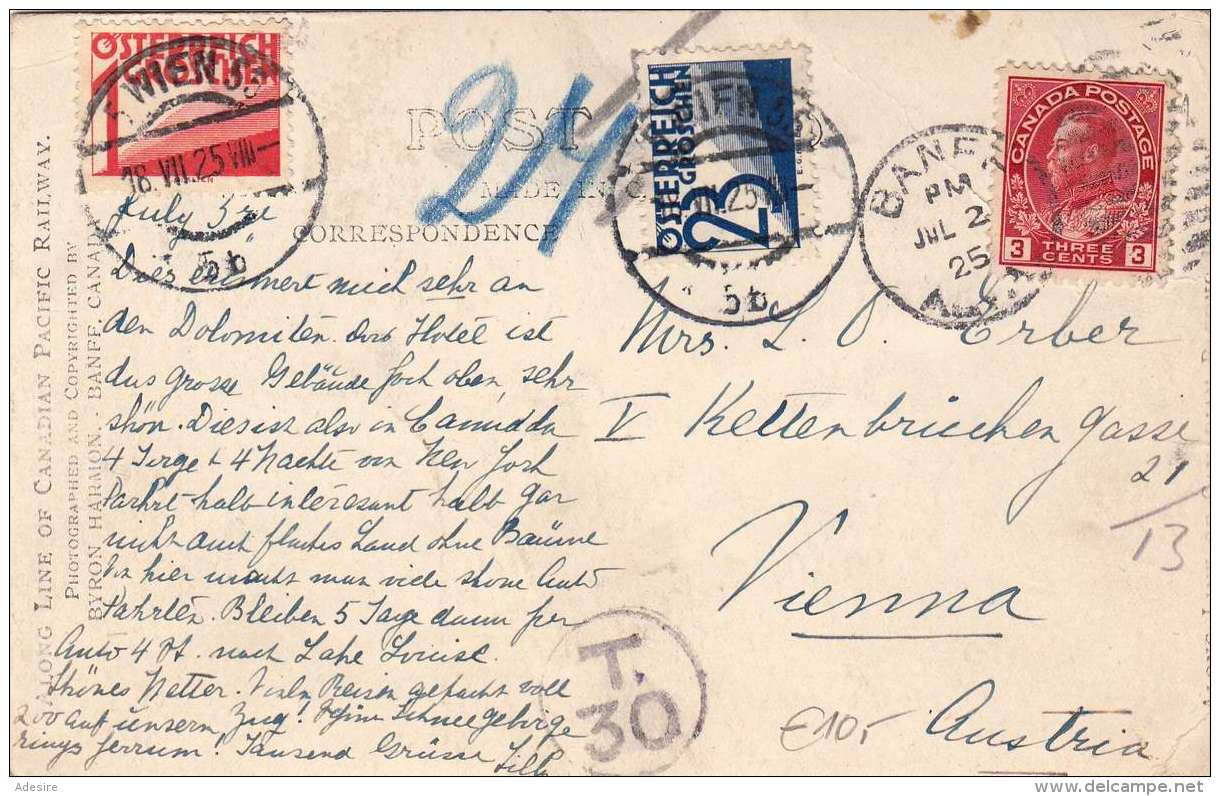 ÖSTERREICH
1 GROSCHEN
WIEN 55
18.VII.25 VIII
5b
24
POST
MADE IN
CORRESPONDENCE
ÖSTERREICH
23 GROSCHEN
WIEN 55
VII.25
5b
BANFF
PM
JUL 2
25
ALTA
CANADA POSTAGE
3 THREE CENTS 3
ALONG LINE OF CANADIAN PACIFIC RAILWAY.
PHOTOGRAPHED AND COPYRIGHTED BY
BYRON HARMON, - BANFF, CANADA
July 3rd
Dies erinnert mich sehr an
den Dolomiten. Das Hotel ist
das grosse Gebäude hoch oben, sehr
shön. Dies ist also in Cannada
4 Tage + 4 Nachte von New York
Fahrt halb interesant halb gar
nicht auch flaches Land ohne Bäume
hier macht man viele shone Auto
Fahrten. Bleiben 5 Tage dann per
Auto 4 St. nach Lake Louise.
Shönes Wetter. Reisen voll
200 auf unserm Zug! Schneegebirge
rings herrum! Tausend Grüsse Lilly
Mrs. L. O. Erber
V Kettenbrücken gasse
21
/13
Vienna
Austria
T.
30
€10,-
Adesire
delcampe.net